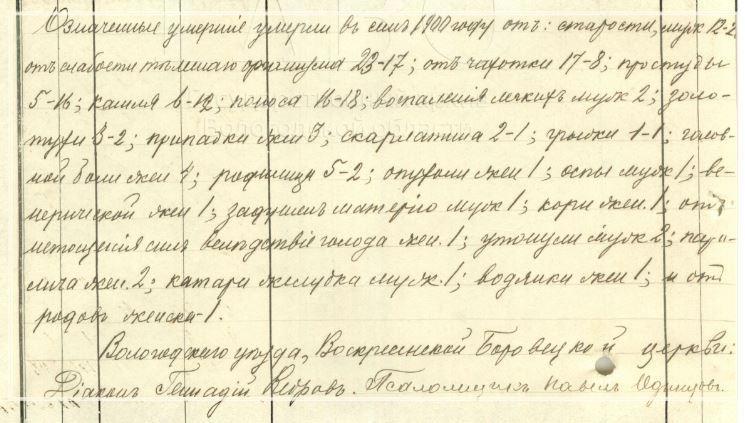 Означенные умершие умерли въ семъ 1900 году отъ: старости, муж 12-2
отъ слабости тѣлеснаго организма 23-17; отъ чахотки 17-8; простуды
5-16; кашля 6-12; поноса 16-18; воспаленія легкихъ муж 2; золо-
тухи 3-2; припадки жен 3; скарлатина 2-1; грыжи 1-1; голов-
ной боли жен 4; родимца 5-2; опухоли жен 1; оспы муж 1; ве-
нерической жен 1; задушенъ матерію муж 1; кори жен. 1; отъ
истощенія силъ вслѣдствіе голода жен. 1; утонули муж 2; пара-
лича жен. 2; катара желудка муж. 1; водянки жен 1; и отъ
родовъ женска-1.
Вологодскаго уѣзда, Воскресенской Боровецкой церкви:
Діаконъ Геннадій Кедровъ. Псаломщикъ Павелъ Одинцовъ.